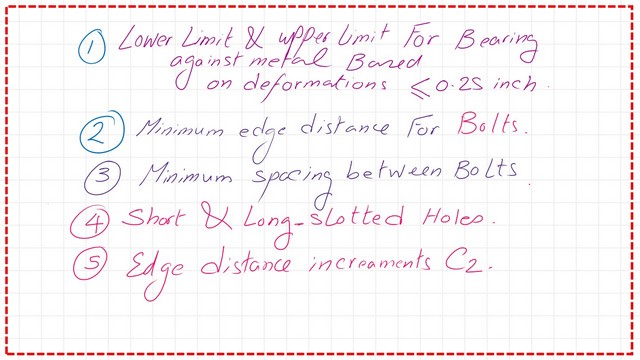 ① Lower Limit & upper Limit For Bearing
against metal Based
on deformations ≤ 0.25 inch.
② Minimum edge distance For Bolts.
③ Minimum spacing between Bolts.
④ Short & Long-slotted Holes.
⑤ Edge distance increaments C2.